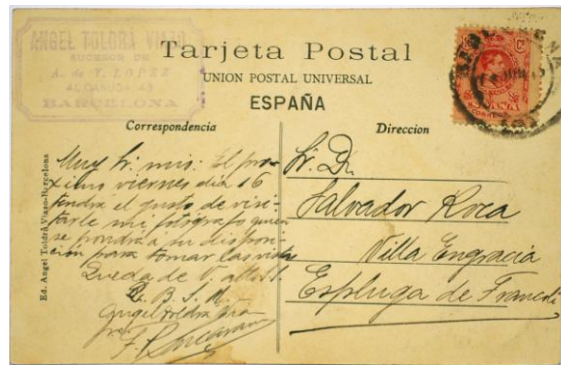 ANGEL TOLDRÁ VIAZO
SUCESOR DE
A. de T. LOPEZ
BARCELONA
Tarjeta Postal
UNION POSTAL UNIVERSAL
ESPAÑA
Correspondencia
Direccion
Ed. Angel Toldrá Viazo-Barcelona
Muy Sr. mio: El pro-
ximo viernes dia 16
tendra el gusto de visi-
tarle mi fotógrafo quien
se pondrá a su disposi-
ción para tomar las vistas
Queda de V. atto. S.
Q. B. S. M.
Angel Toldrá Viazo
Sr. Dn.
Salvador Roca
Villa Engracia
Espluga de Francolí